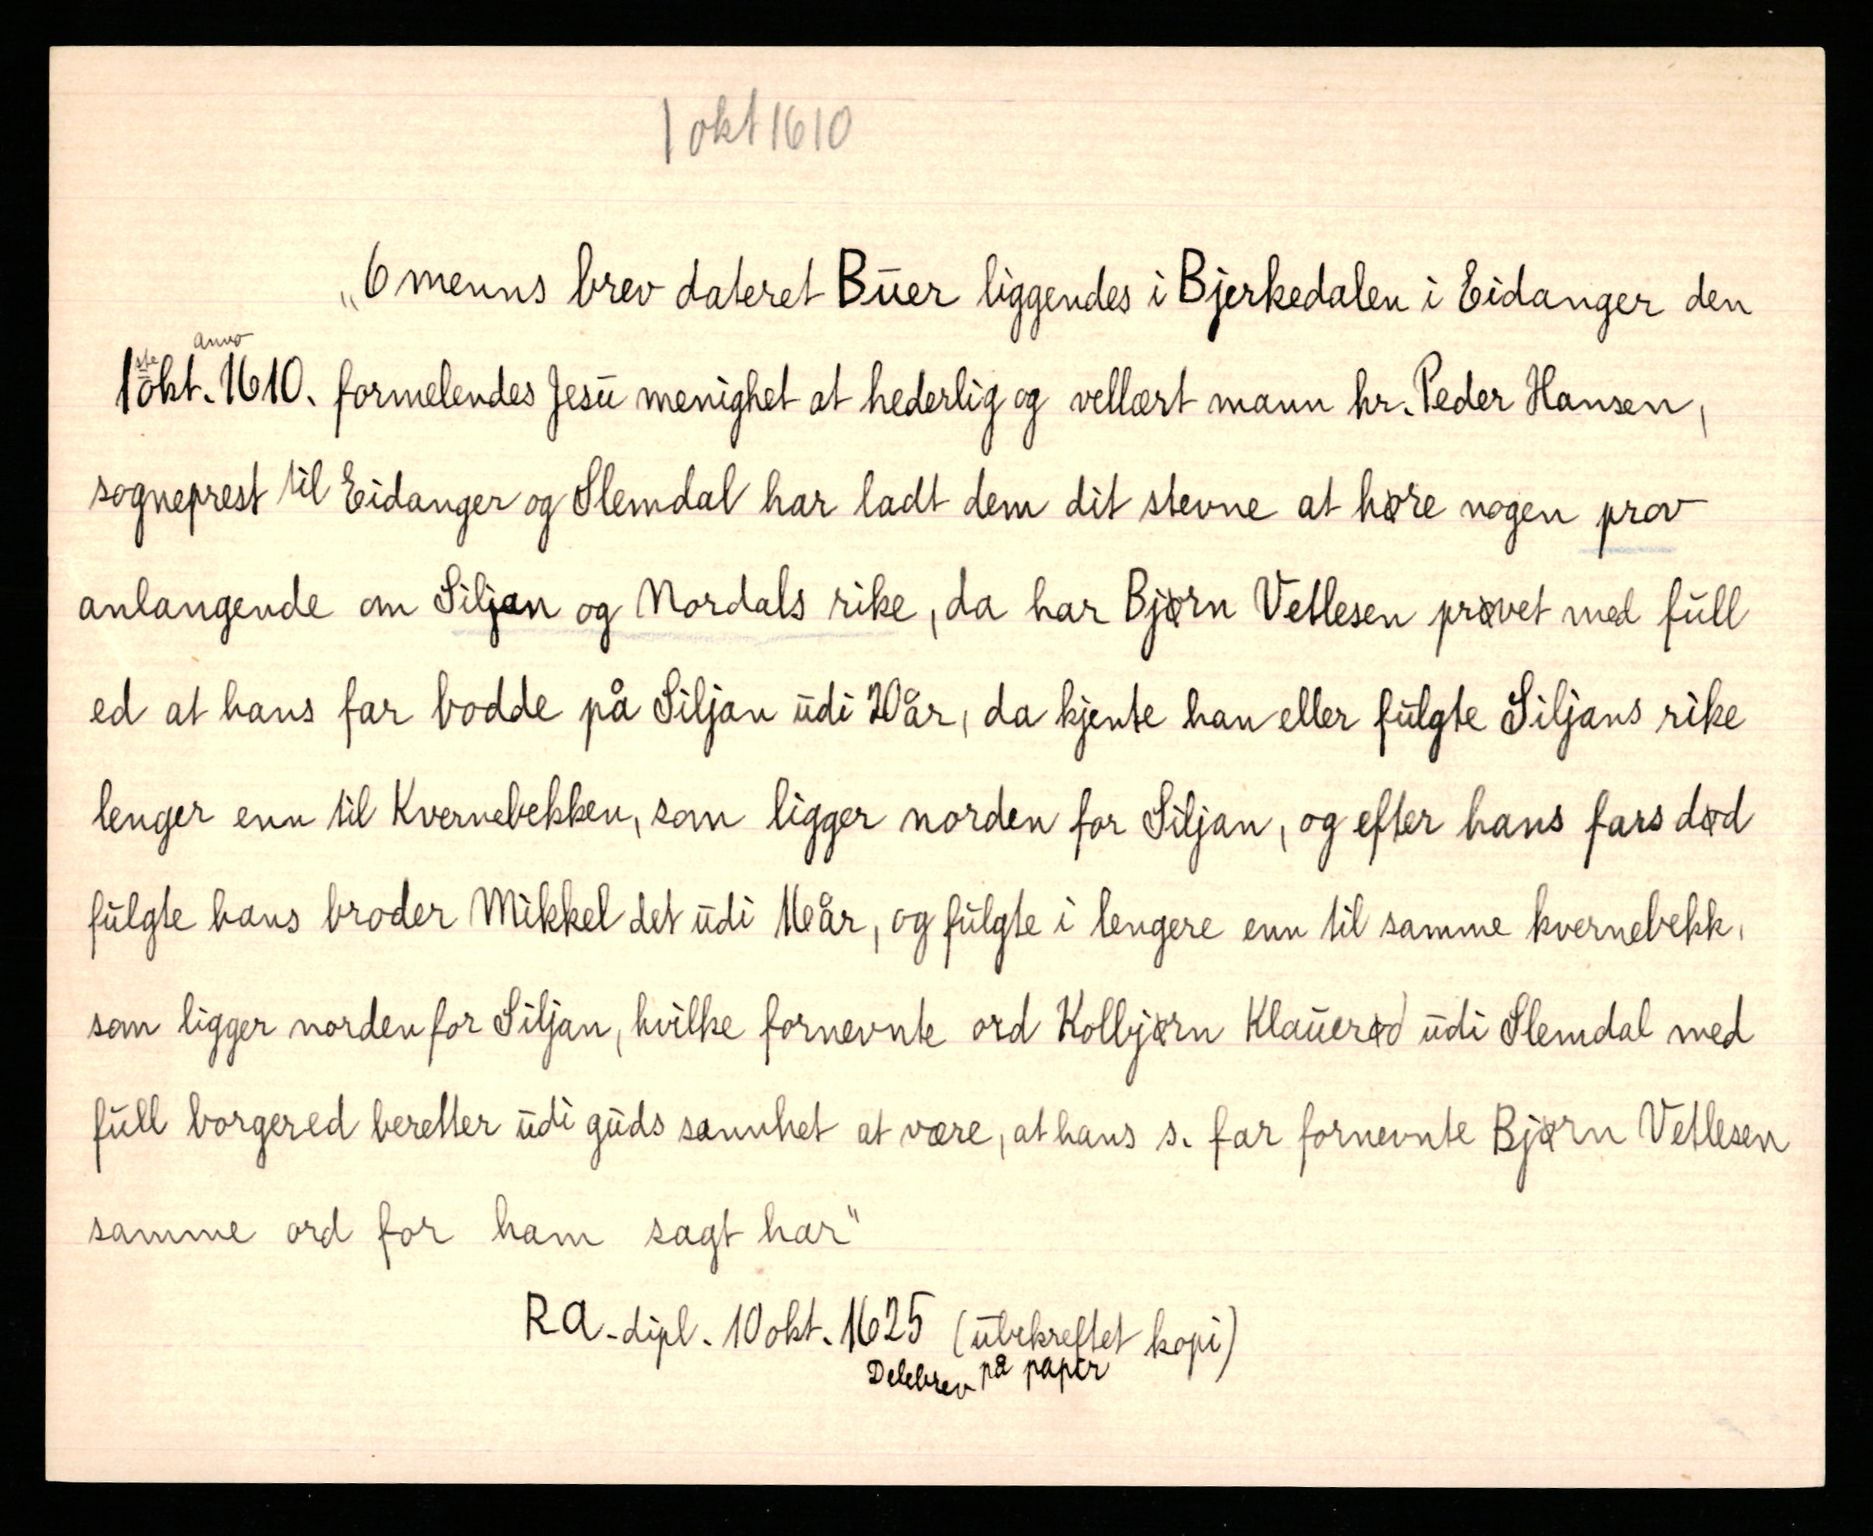 1 okt 1610
„6 menns brev dateret Buer liggendes i Bjerkedalen i Eidanger den
anno
1ste okt. 1610. formelendes Jesu menighet at hederlig og vellært mann hr. Peder Hansen,
sogneprest til Eidanger og Slemdal har ladt dem dit stevne at høre nogen prov
anlangende om Siljan og Nordals rike, da har Bjørn Vetlesen prøvet med full
ed at hans far bodde på Siljan udi 20 år, da kjente han eller fulgte Siljans rike
lenger enn til Kvernebekken, som ligger norden for Siljan, og efter hans fars død
fulgte hans broder Mikkel det udi 16 år, og fulgte i lengere enn til samme kvernebekk,
som ligger norden for Siljan, hvilke fornevnte ord Kolbjørn Klauerød udi Slemdal med
full borgered beretter udi guds sannhet at være, at hans s. far fornevnte Bjørn Vetlesen
samme ord for ham sagt har"
RA.-dipl. 10 okt. 1625 (ubekreftet kopi)
Delebrev på papir